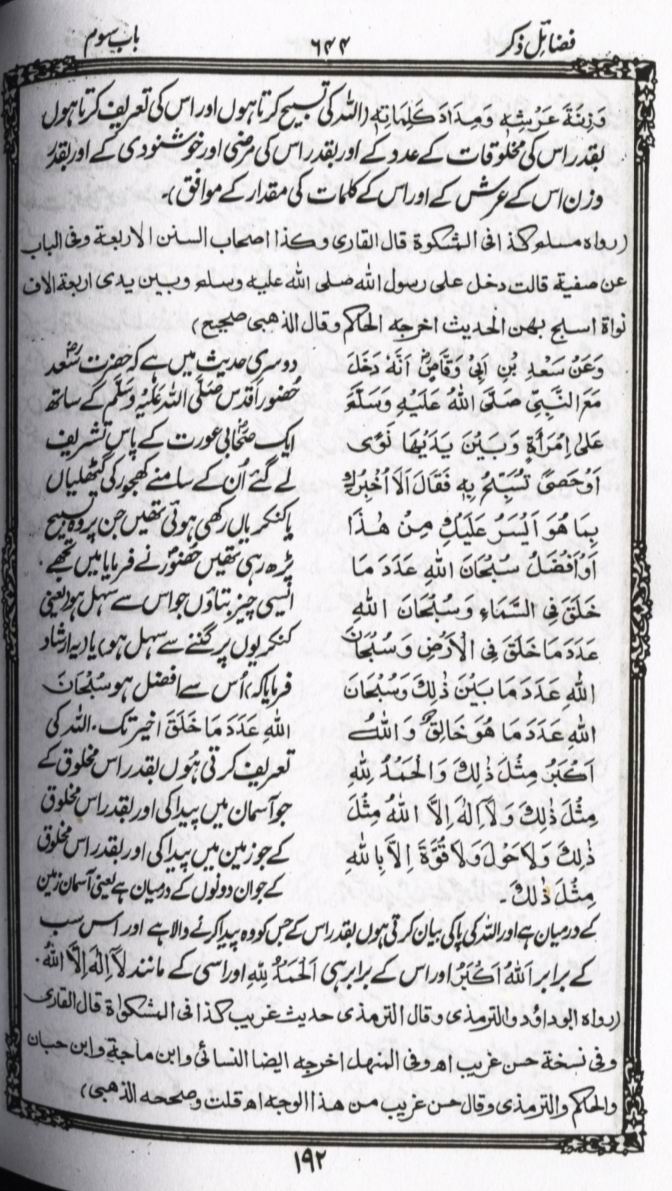 فضائل ذکر
۶۴۴
باب سوم
وَزِنَةَ عَرْشِهٖ وَمِدَادَ كَلِمَاتِهٖ (اللہ کی تسبیح کرتا ہوں اور اس کی تعریف کرتا ہوں
بقدر اس کی مخلوقات کے عدد کے اور بقدر اس کی مرضی اور خوشنودی کے اور بقدر
وزن اس کے عرش کے اور اس کے کلمات کی مقدار کے موافق)۔
(رواه مسلم كذا فی المشکوٰة قال القاری وكذا اصحاب السنن الاربعة وفی الباب
عن صفیة قالت دخل علی رسول الله صلی الله علیه وسلم وبین یدی اربعة الاف
نواة اسبح بهن الحدیث اخرجه الحاکم وقال الذهبی صحیح)
وَعَنْ سَعْدِ بْنِ اَبِیْ وَقَّاصٍؓ اَنَّهٗ دَخَلَ
مَعَ النَّبِیِّ صَلَّی اللهُ عَلَیْهِ وَسَلَّمَ
عَلٰی اِمْرَأَةٍ وَبَیْنَ یَدَیْهَا نَوًی
اَوْ حَصًی تُسَبِّحُ بِهٖ فَقَالَ اَلَا اُخْبِرُكِ
بِمَا هُوَ اَیْسَرُ عَلَیْكِ مِنْ هٰذَا
اَوْ اَفْضَلُ سُبْحَانَ اللهِ عَدَدَ مَا
خَلَقَ فِی السَّمَاءِ وَسُبْحَانَ اللهِ
عَدَدَ مَا خَلَقَ فِی الْاَرْضِ وَسُبْحَانَ
اللهِ عَدَدَ مَا بَیْنَ ذٰلِكَ وَسُبْحَانَ
اللهِ عَدَدَ مَا هُوَ خَالِقٌ وَاللهُ
اَكْبَرُ مِثْلَ ذٰلِكَ وَالْحَمْدُ لِلّٰهِ
مِثْلَ ذٰلِكَ وَلَآ اِلٰهَ اِلَّا اللهُ مِثْلَ
ذٰلِكَ وَلَا حَوْلَ وَلَا قُوَّةَ اِلَّا بِاللهِ
مِثْلَ ذٰلِكَ۔
دوسری حدیث میں ہے کہ حضرت سعدؓ
حضور اقدس صَلَّی اللہ عَلَیْہِ وَسَلَّم کے ساتھ
ایک صحابی عورت کے پاس تشریف
لے گئے اُن کے سامنے کھجور کی گٹھلیاں
یا کنکریاں رکھی ہوئی تھیں جن پر وہ تسبیح
پڑھ رہی تھیں حضورؐ نے فرمایا میں تجھے
ایسی چیز بتاؤں جو اس سے سہل ہو (یعنی
کنکریوں پر گننے سے سہل ہو) یا (یہ ارشاد
فرمایا کہ) اُس سے افضل ہو سُبْحَانَ
اللهِ عَدَدَ مَا خَلَقَ اخیر تک۔ اللہ کی
تعریف کرتی ہُوں بقدر اس مخلوق کے
جو آسمان میں پیدا کی اور بقدر اس مخلوق
کے جو زمین میں پیدا کی اور بقدر اس مخلوق
کے جو ان دونوں کے درمیان ہے یعنی آسمان زمین
کے درمیان ہے اور اللہ کی پاکی بیان کرتی ہوں بقدر اس کے جس کو وہ پیدا کرنے والا ہے اور اس سب
کے برابر اَللهُ اَكْبَرُ اور اس کے برابر ہی اَلْحَمْدُ لِلّٰهِ اور اسی کے مانند لَآ اِلٰهَ اِلَّا اللهُ۔
(رواه ابوداؤد والترمذی وقال الترمذی حدیث غریب كذا فی المشکوٰة قال القاری
وفی نسخة حسن غریب اھ وفی المنهل اخرجه ایضا النسائی وابن ماجة وابن حبان
والحاکم والترمذی وقال حسن غریب من هذا الوجه اھ قلت وصححه الذهبی)
۱۹۲